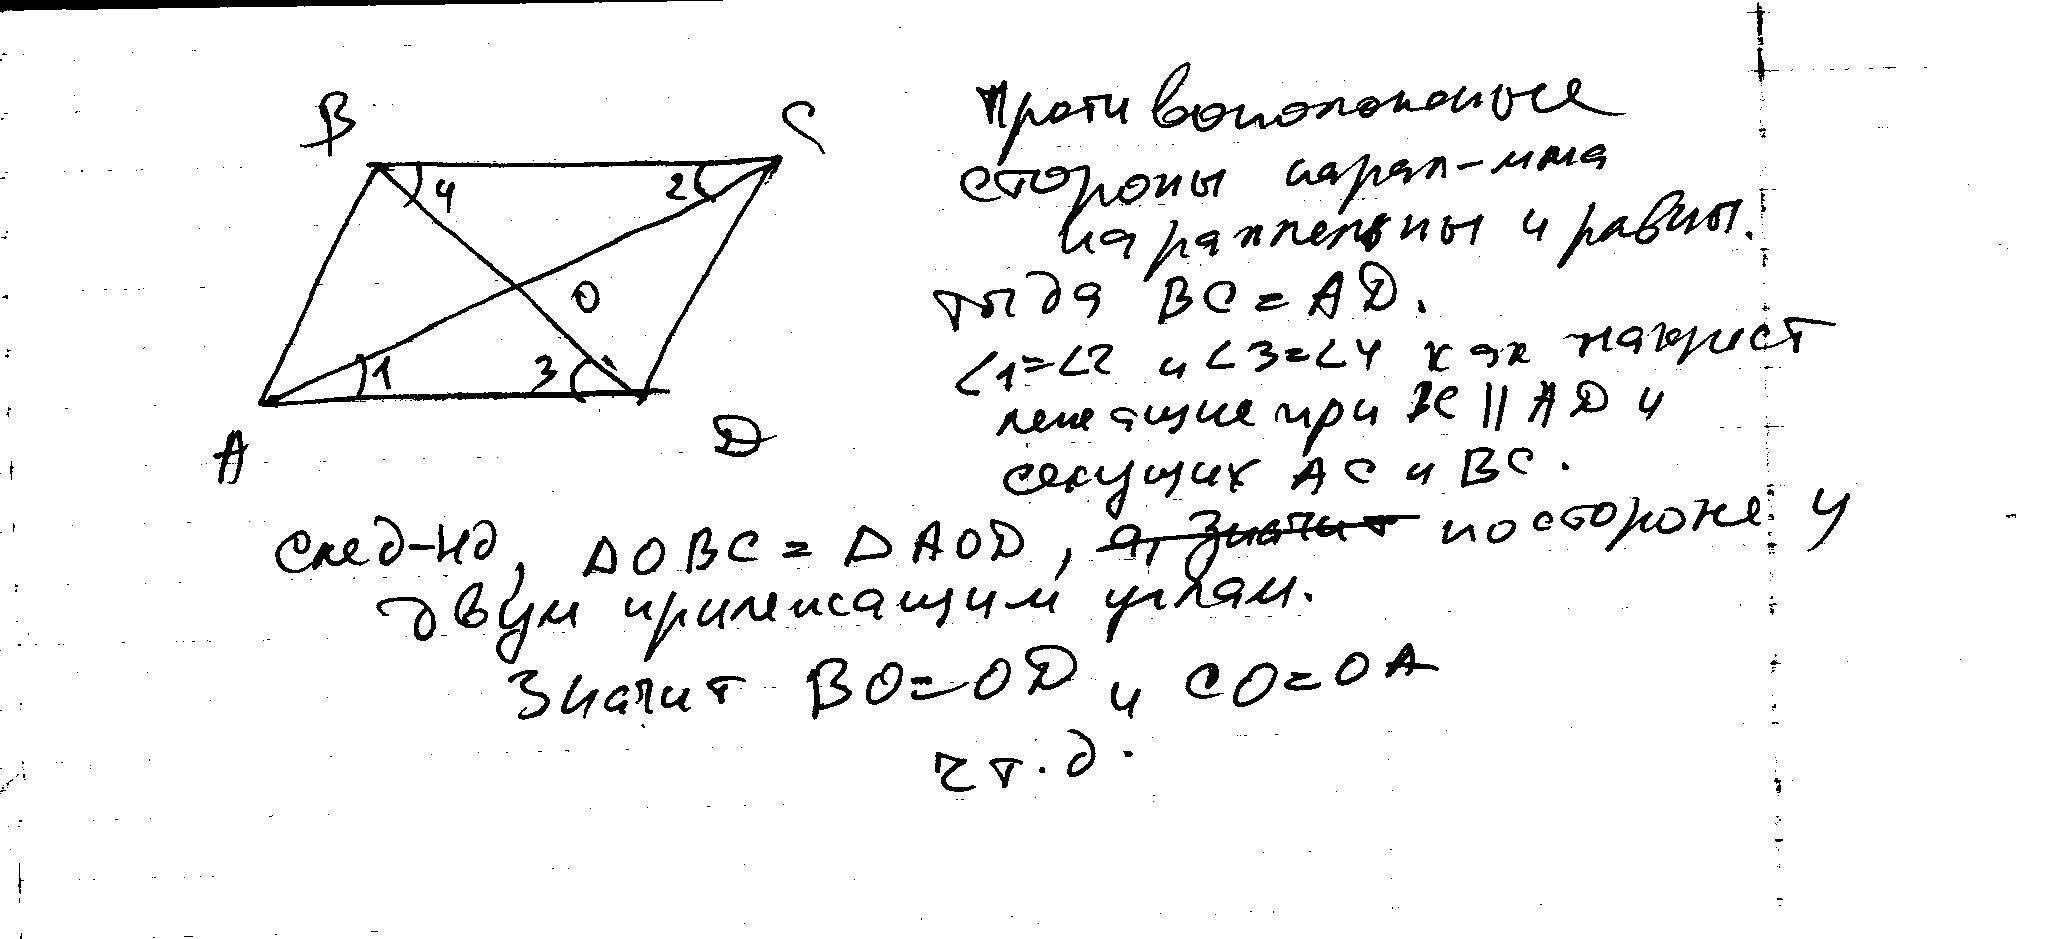 B
C
4
2
O
1
3
A
D
Противоположные
стороны парал-мма
параллельны и равны.
тогда BC = AD.
∠1=∠2 и ∠3=∠4 как накрест
лежащие при BC || AD и
секущих AC и BC.
след-но, ΔOBC = ΔAOD, а, значит по стороне и
двум прилежащим углам.
Значит BO=OD и CO=OA
чт.д.